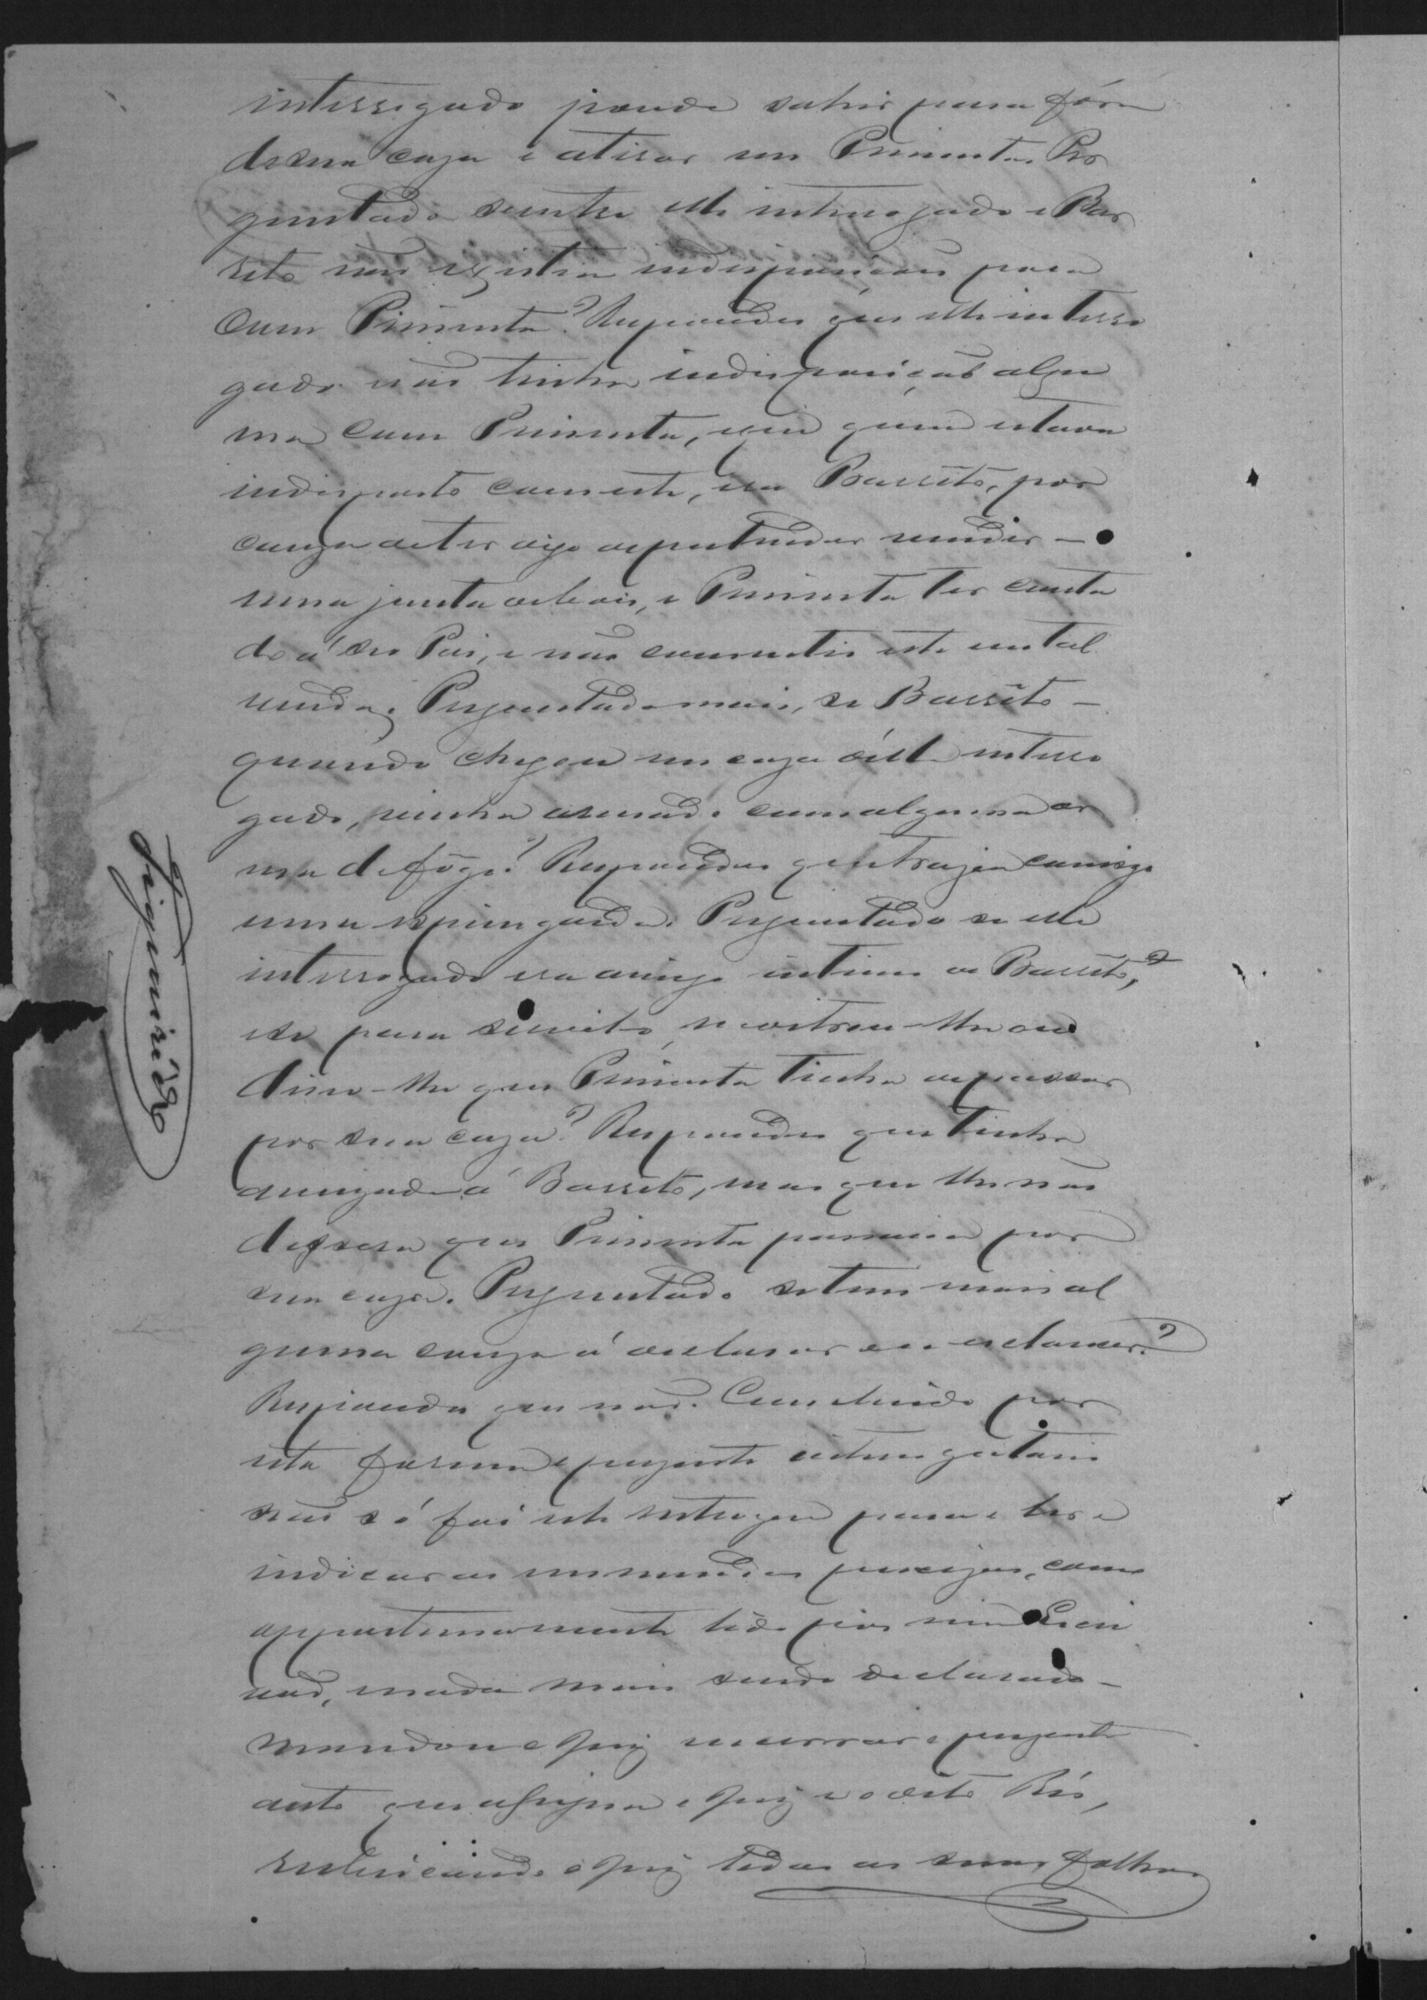 interrogado poude sahir para fóra
de sua caza e atirar em Pimenta. Per
guntado se entre elle interrogado e Bar
reto não existia indisposição para
com Pimenta? Respondeu que elle interro
gado não tinha indisposição algu
ma com Pimenta, e que quem estava
indisposto com este, era Barreto, por
cauza de ter elle pretendido vender —
uma junta de bois, e Pimenta ter conta
do á seu Pai, e não consentir este em tal
venda. Perguntado mais, se Barreto —
quando chegou em caza d'elle interro
gado, vinha armado com alguma ar
ma de fôgo? Respondeu que trazia comsigo
uma espingarda. Perguntado se elle
interrogado era amigo intimo de Barreto, e
se para
disse-lhe que Pimenta tinha de passar
por sua caza? Respondeu que tinha
amizade á Barreto, mas que lhe não
dissera que Pimenta passaria por
sua caza. Perguntado se tem mais al
guma couza á declarar ou esclarecer?
Respondeu que não. Concluido por
esta forma o prezente interrogatorio
não só foi este entregue para o ler e
indicar as emmendas precizas, como
opportunamente lido por mim Escri
vão, nada mais sendo declarado —
mandou o Juiz encerrar o prezente
auto que assigna o Juiz e o dito Réo,
rubricando o Juiz todas as suas folhas
Figueirêdo